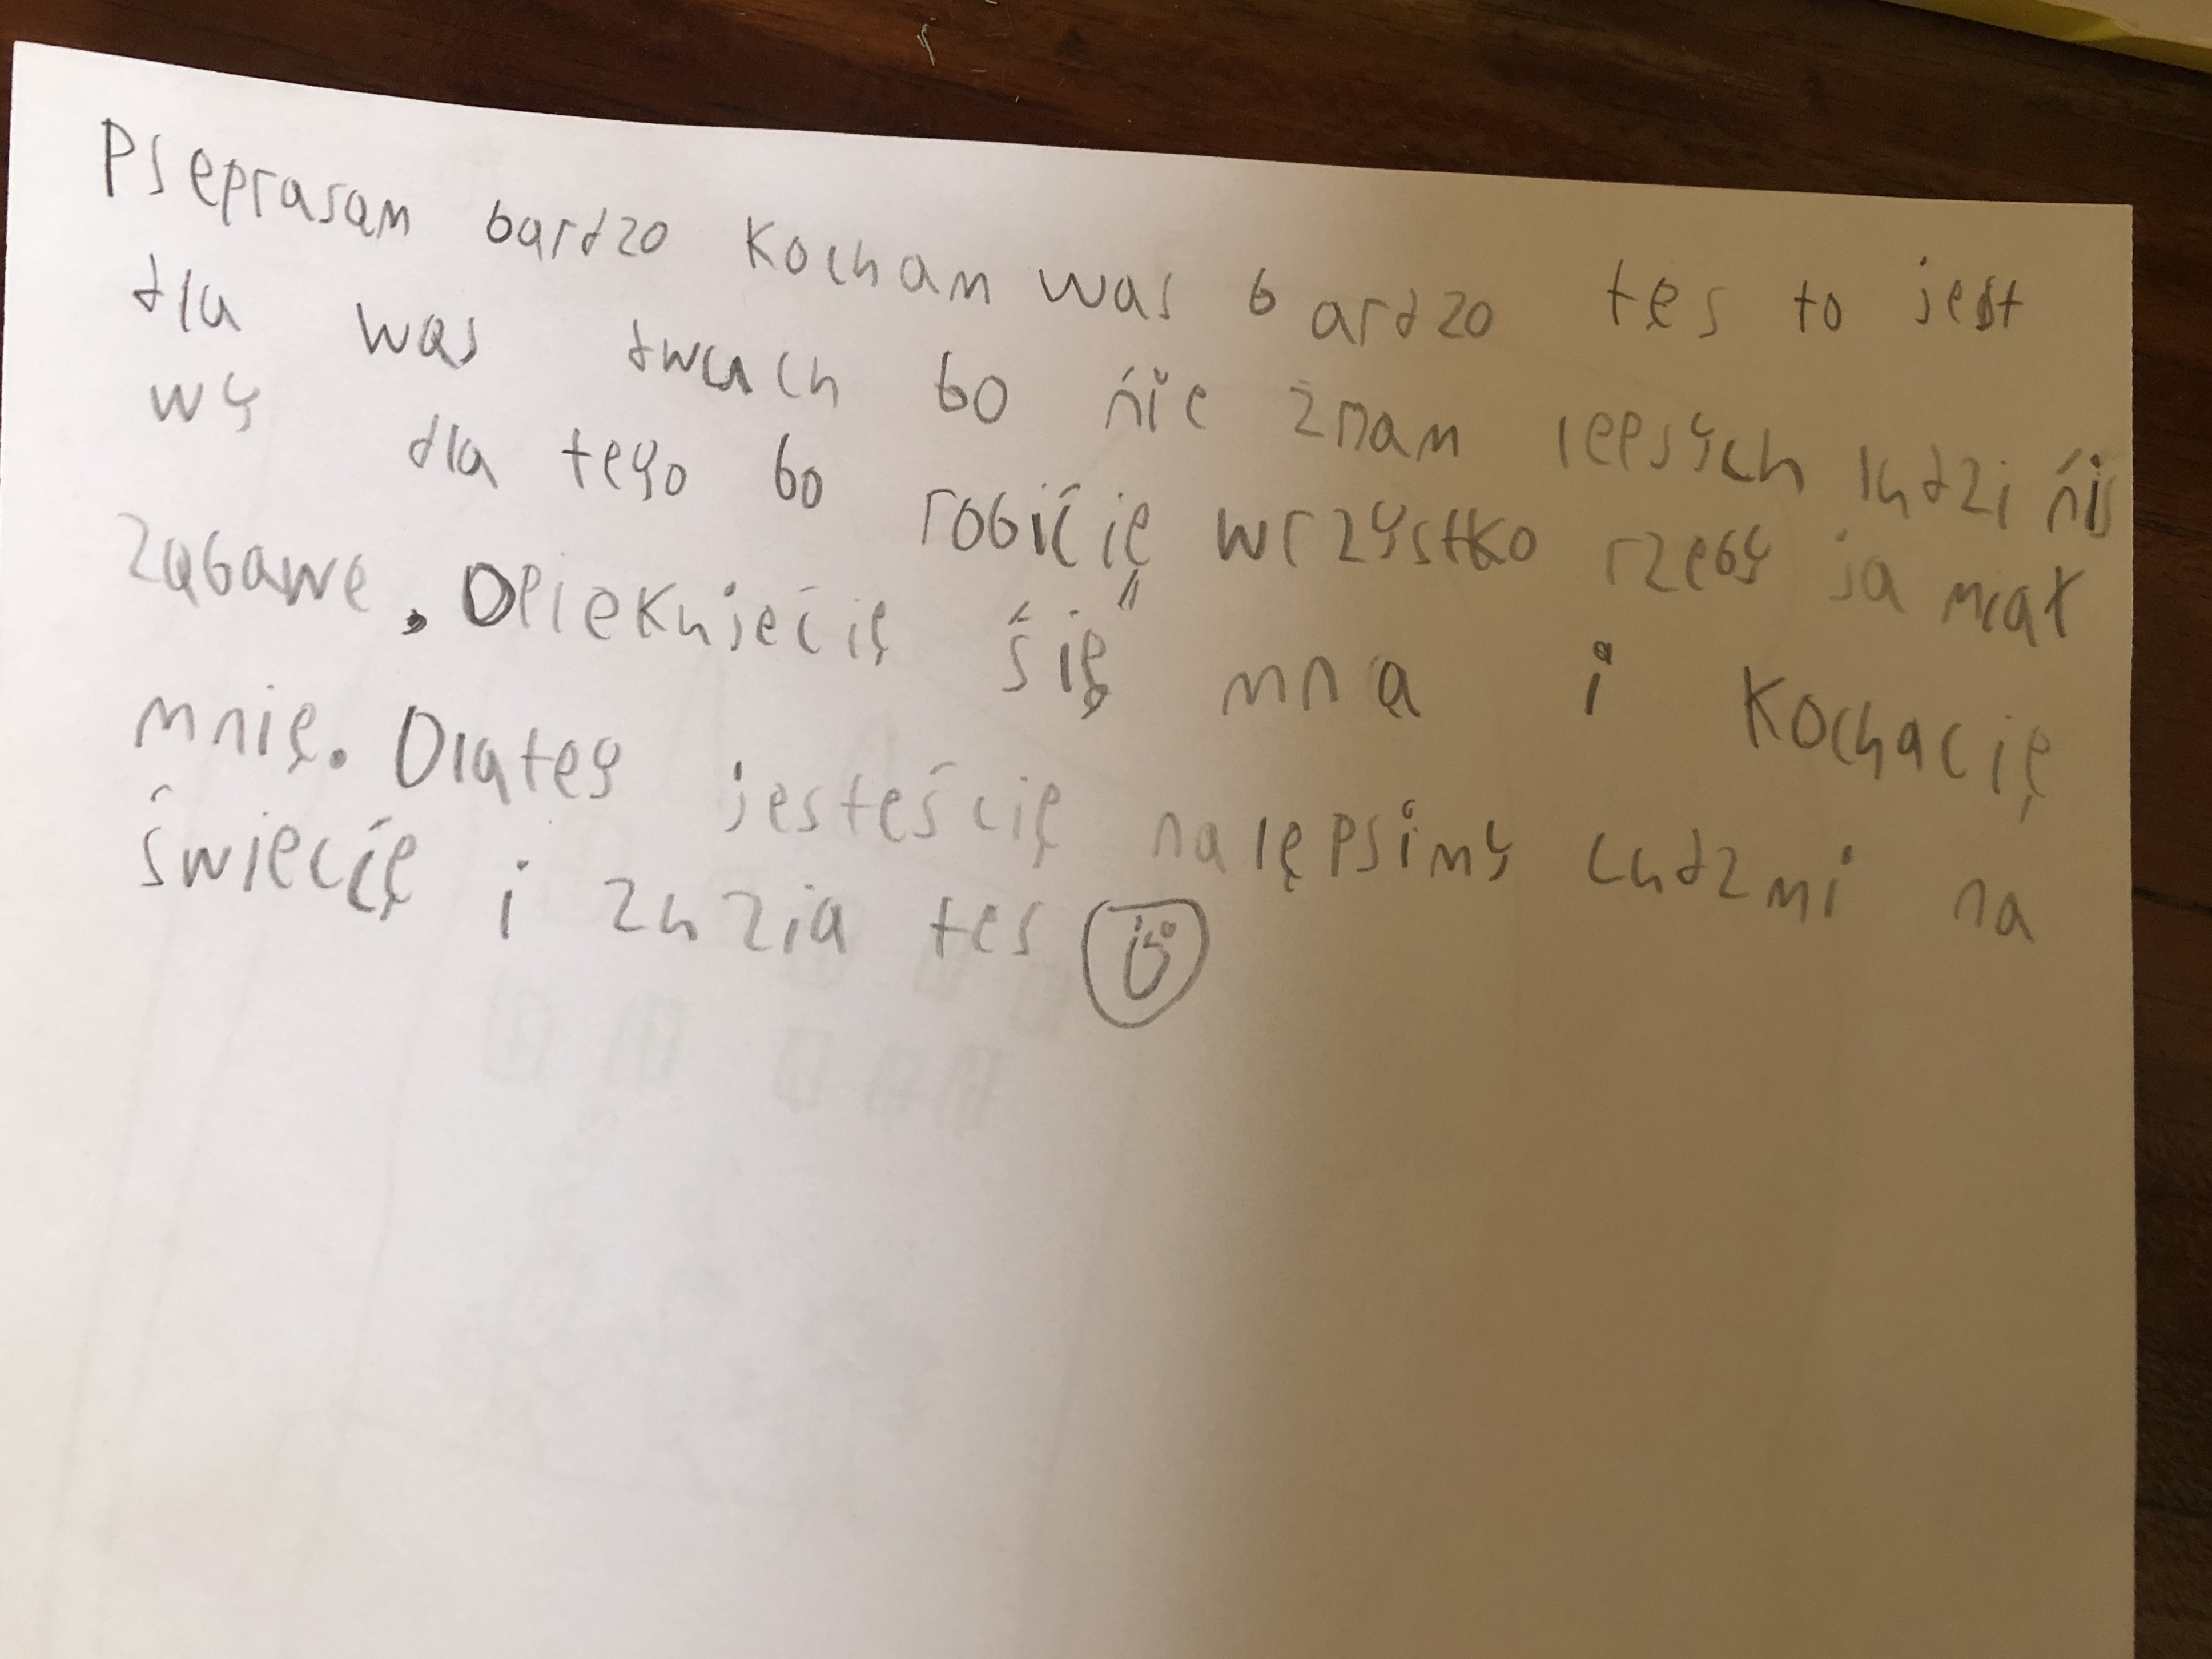 Pseprasam bardzo kocham was bardzo tes to jest
dla was dwuach bo ńie znam lepsych ludzi ńis
wy dla tego bo robićię wrzystko rzeby ja miał
zabawe. Opiekujećię śię mna i kochacię
mnię. Dlateg jesteścię nalępsimy ludzmi na
świecię i zuzia tes